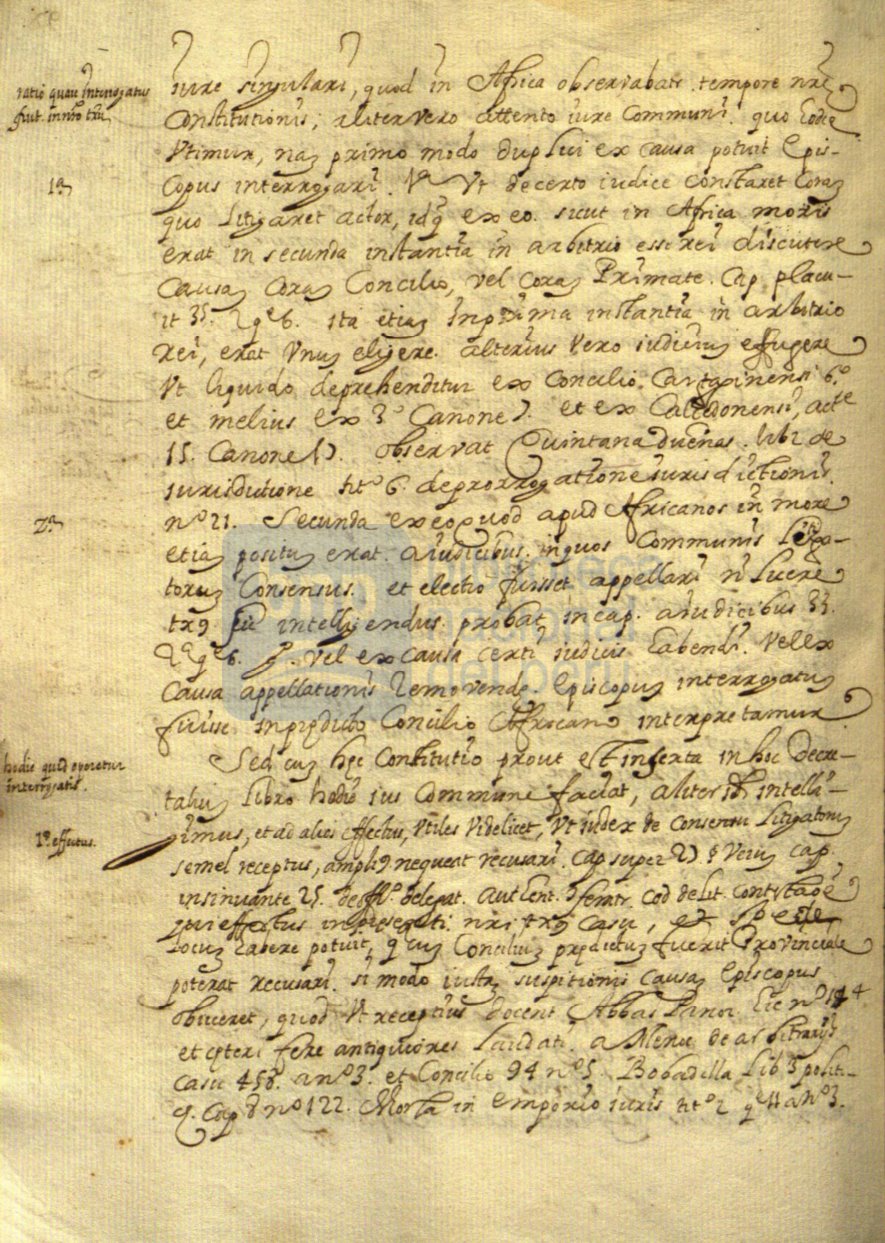 ratio quare interrogatus
fuit in nro txu
iure singulari, quod in Africa observabatr. tempore nre
Constitutionis, aliter vero attento iure Communi. quo hodie
Vtimur, naz primo modo duplici ex causa potuit Epis-
1a
copus interrogari. 1a Vt de certo iudice constaret Coraz
quo litigaret actor, idq ex eo. sicut in Africa moris
erat in secunda instantia in arbitrio esse rei discutere
Causaz Coraz Concilio, vel Coraz Primate. Cap placu-
it 35. 2 qe 6. ita etiaz in prima instantia in arbitrio
rei, erat Vnuz eligere. alterius vero iudiciuz effugere
Vt liquido deprehenditur ex Concilio. Cartaginensi 6.o
et melius ex 3o Canone 7. et ex Calcedonensi, acte
15. Canone 17. observat Quintanadueñas. lib 2 de
iurisdictione tito 6. de prorrogatione iurisdictionis.
2a
no 21. Secunda ex eo quod apud Africanos in more
etiaz posituz erat. a iudicibus. in quos Communis Litiga-
toruz Consensus. et electio fuisset appellari n licere
tx9 sic intelligendus probat in cap. a iudicibus 33.
2a qe 6. vel ex causa certi iudicis habendi. vel ex
Causa appellationis removendę. Episcopuz interrogatuz
fuisse in prędicto Concilio Africano interpretamur
hodie quid operetur
interrogatio.
Sed cuz hęc Constitutio prout est inserta in hoc Decre-
taliuz libro hodie ius Commune faciat, aliter intelli-
1s effectus.
gimus, et ad alios effectus, Vtiles Videlicet, Vt iudex de Consensu Litigatoruz
semel receptus, ampli9 nequeat recusari. Cap super 27. § Veruz cap.
insinuante 25. de offo. delegat.
qui effectus in presenti nri tx9 casu,
locuz habere potuit, q cuz Conciliuz prędictuz fuerit Provinciale
poterat recusari. si modo iustaz suspitionis Causaz Episcopus
obiiceret, quod Vt receptius docent Abbas Panor. hic no
et cęteri fere antiquiores laudati. a Menoc de arbitrarijs
casu 458. a no 3. et Concilio 94 no 5. Bobadilla Lib 3 politi-
cę. Cap 8 no 122. Morla in emporio iuris tito 2 qe 11 a no 3.
biblioteca
nacional
del perú